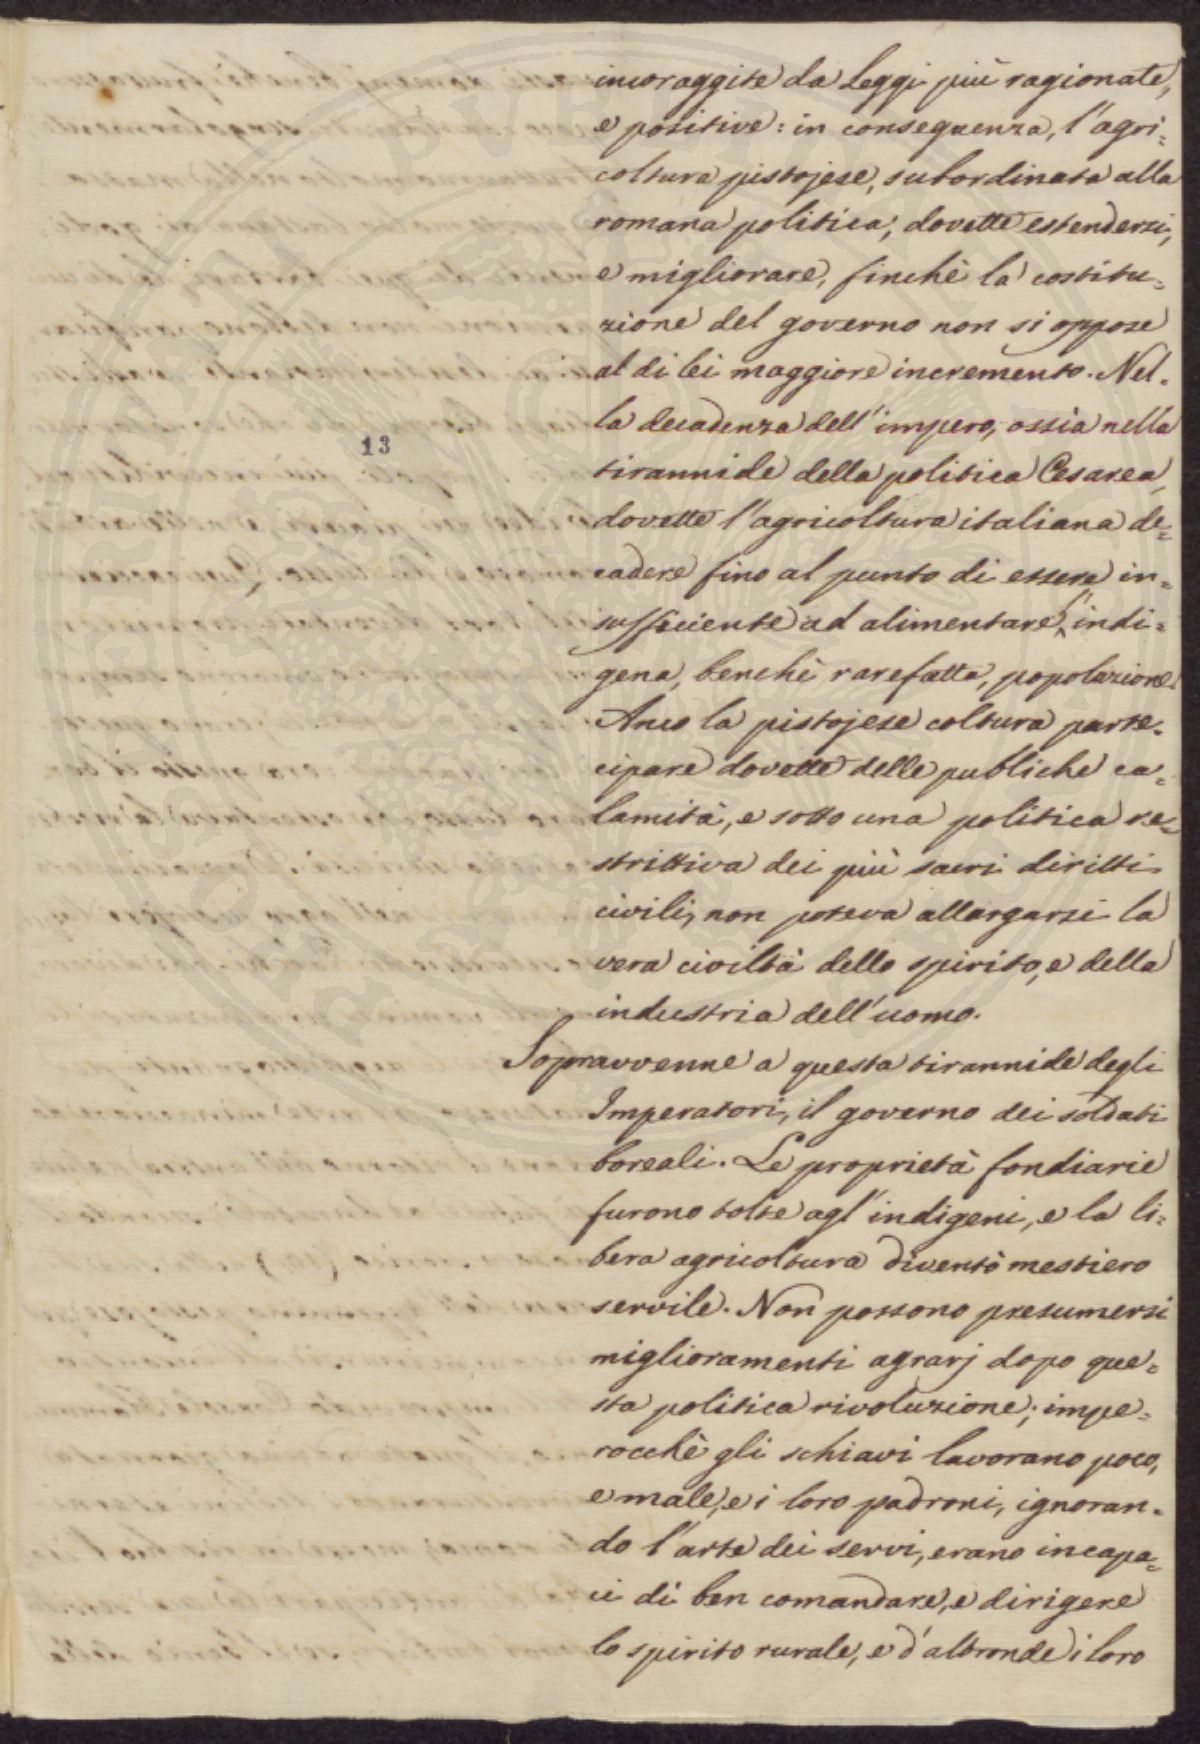 incoraggite da leggi più ragionate,
e positive: in conseguenza, l'agri=
coltura pistojese, subordinata alla
romana politica, dovette estendersi,
e migliorare, finchè la costitu=
zione del governo non si oppose
al di lei maggiore incremento. Nel=
la decadenza dell'impero, ossia nella
13
tirannide della politica Cesarea,
dovette l'agricoltura italiana de=
cadere fino al punto di essere in=
sufficiente ad alimentare l'indi=
gena, benchè rarefatta, popolazione.
Anco la pistojese coltura parte=
cipare dovette delle publiche ca=
lamità, e sotto una politica re=
strittiva dei più sacri diritti
civili, non poteva allargarsi la
vera civiltà dello spirito, e della
industria dell'uomo.
Sopravvenne a questa tirannide degli
Imperatori, il governo dei soldati
boreali. Le proprietà fondiarie
furono tolte agl'indigeni, e la li=
bera agricoltura diventò mestiero
servile. Non possono presumersi
miglioramenti agrarj dopo que=
sta politica rivoluzione; impe=
rocchè gli schiavi lavorano poco,
e male, e i loro padroni, ignoran=
do l'arte dei servi, erano incapa=
ci di ben comandare, e dirigere
lo spirito rurale, e d'altronde i loro